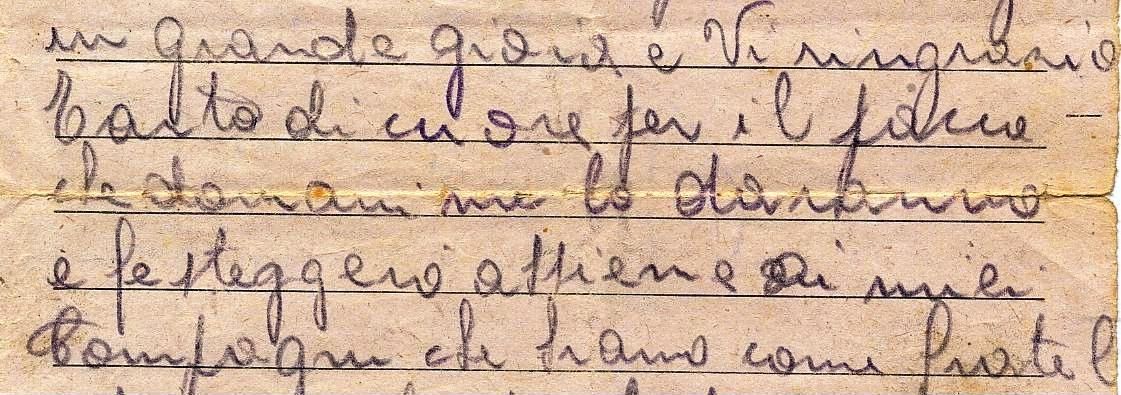 in grande gioia e Vi ringrazio
tanto di cuore per il pacco —
che domani me lo daranno
e festeggerò assieme ai miei
compagni che siamo come fratel